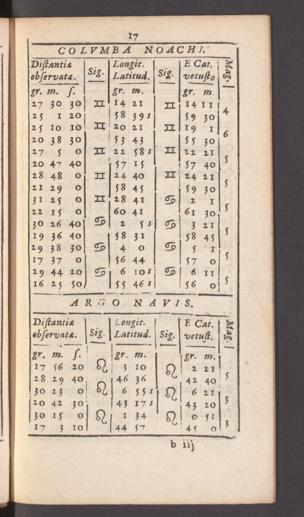 17
COLVMBA NOACHI.
Distantiæ observatæ. Sig. Longit. Latitud. Sig. E Cat. vetusto Mag.
gr. m. s. gr. m. gr. m
27 30 30 ♊ 14 21 ♊ 14 11 4
25 1 20 58 39 s 59 30
25 10 10 ♊ 20 21 ♊ 19 1 6
20 38 30 53 43 55 30
27 5 0 ♊ 22 58 s ♊ 22 21 5
20 47 40 57 15 57 40
28 48 0 ♊ 24 40 ♊ 24 21 5
21 29 0 58 45 59 30
31 25 0 ♊ 28 41 ♋ 2 1 5
22 15 0 60 41 61 30
30 26 40 ♋ 2 5 s ♋ 3 21 5
19 36 40 58 31 58 45
29 38 30 ♋ 4 0 ♋ 5 1 5
17 37 0 56 44 57 0
29 44 20 ♋ 6 10 s ♋ 6 11 5
16 25 50 55 46 s 56 0
ARGO NAVIS.
Distantiæ observatæ. Sig. Longit. Latitud. Sig. E Cat. vetust. Mag.
gr. m. s. gr. m. gr. m.
17 56 20 ♌ 3 10 ♌ 2 21 5
28 29 40 46 36 42 40
30 23 0 ♌ 6 55 s ♌ 6 21 3
20 42 30 43 17 s 43 20
30 15 0 ♌ 1 34 ♌ 0 51 3
17 3 10 44 57 45 0
b iij